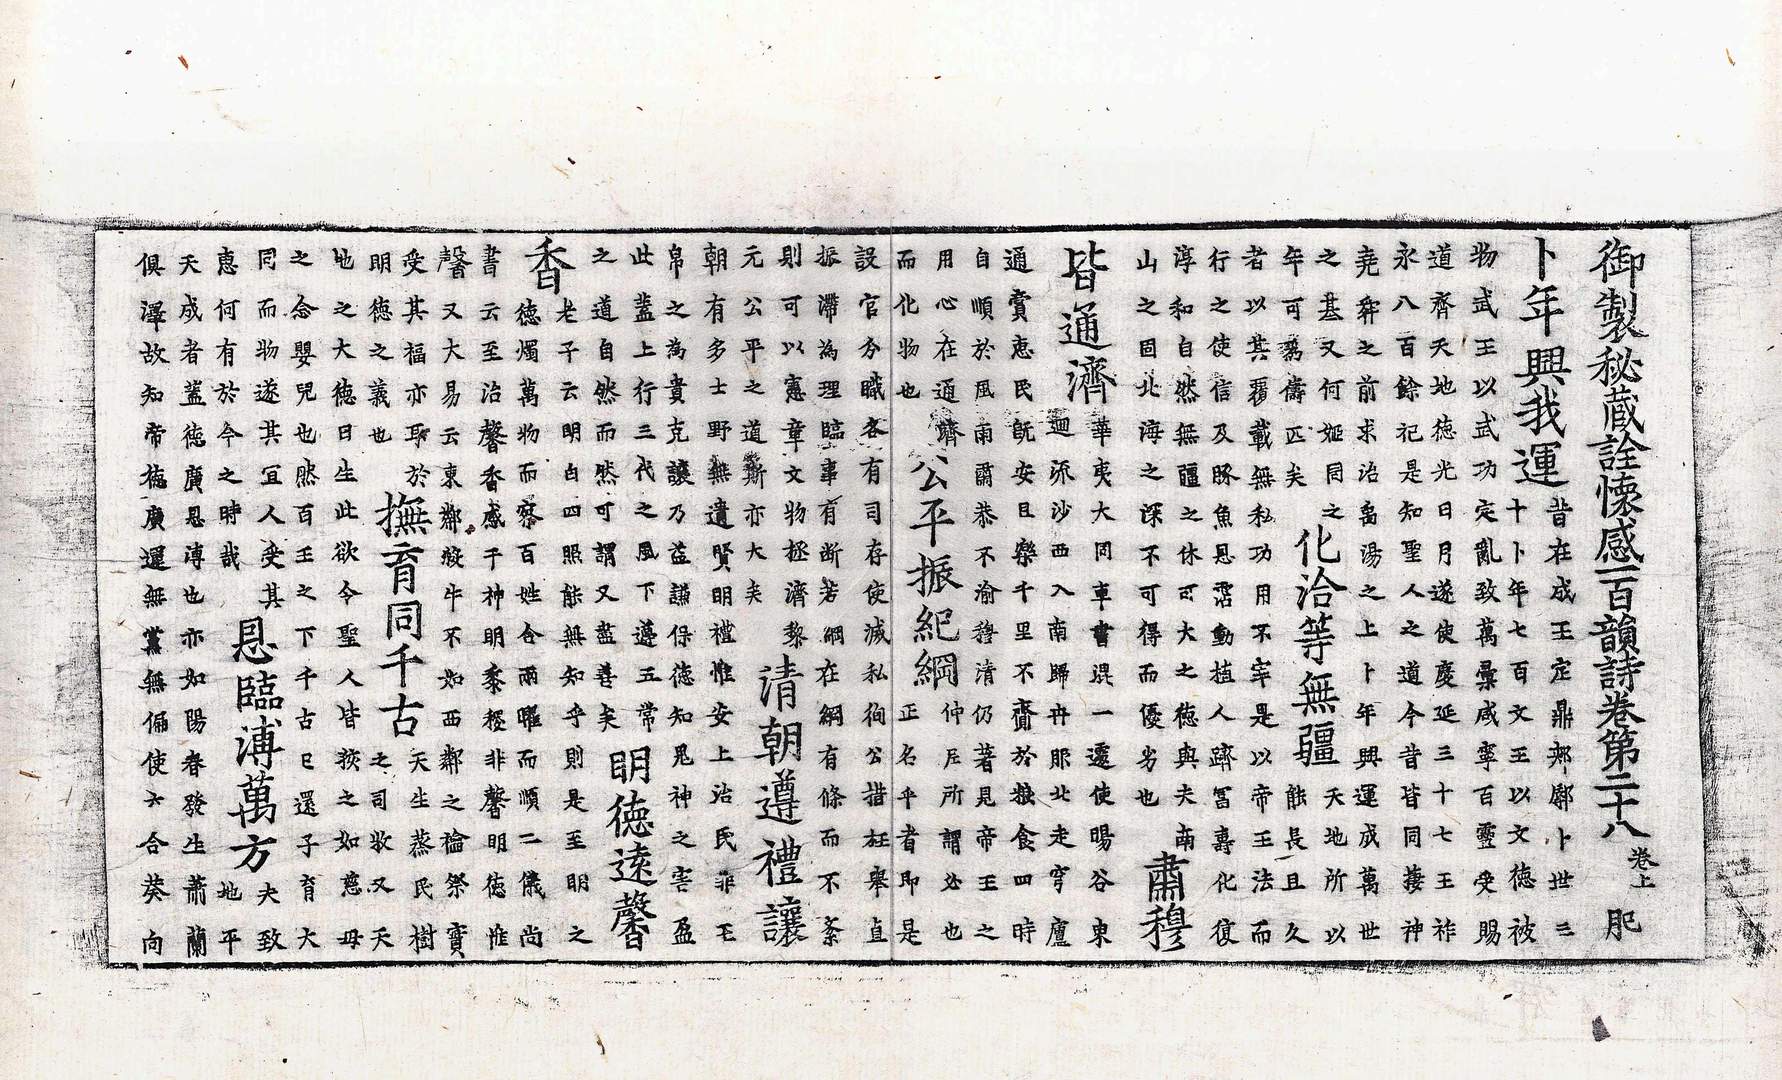 御製秘蔵詮懷感一百韻詩卷第二十八 卷上 肥
卜年興我運
昔在成王定鼎郟鄏卜世三
十卜年七百文王以文德被
物武王以武功定亂致萬彙咸寧百靈受賜
道齊天地德光日月遂使慶延三十七王祚
永八百餘祀是知聖人之道今昔皆同捿神
堯舜之前求治禹湯之上卜年興運成萬世
之基又何姬同之
年可爲儔匹矣
化洽等無疆
天地所以
能長且久
者以其覆載無私功用不宰是以帝王法而
行之使信及豚魚恩霑動植人躋冨壽化復
淳和自然無疆之休可大之德與夫南
山之固北海之深不可得而優劣也
肅穆
皆通濟
華夷大同車書混一遷使暘谷東
迴流沙西入南歸冉駹北走穹廬
通賞惠民旣安且樂千里不齎於粮食四時
自順於風雨肅恭不渝穆清仍著見帝王之
用心在通濟
而化物也
公平振紀綱
仲尼所謂必也
正名乎者即是
設官分職各有司存使滅私徇公措枉舉直
振滯為理臨事有断若綱在綱有條而不紊
則可以憲章文物拯濟黎
元公平之道斯亦大矣
清朝遵禮讓
朝有多士野無遺賢明禮惟安上治民非王
帛之為貴克讓乃益謙保德知鬼神之害盈
此蓋上行三代之風下遵五常
之道自然而然可謂又盡善矣
明德遠馨
香
老子云明白四照能無知乎則是至明之
德燭萬物而察百姓合兩曜而順二儀尚
書云至治馨香感于神明黍稷非馨明德惟
馨又大易云東鄰殺牛不如西鄰之禴祭寶
受其福亦取於
明德之義也
撫育同千古
天生蒸民樹
之司牧又天
地之大德曰生此欲令聖人皆撫之如慈母
之念嬰兒也然百王之下千古已還子育大
同而物遂其宜人受其
惠何有於今之時哉
恩臨溥萬方
夫致
地平
天成者蓋德廣恩溥也亦如陽春發生蕭蘭
俱澤故知帝德廣運無黨無偏使六合葵向